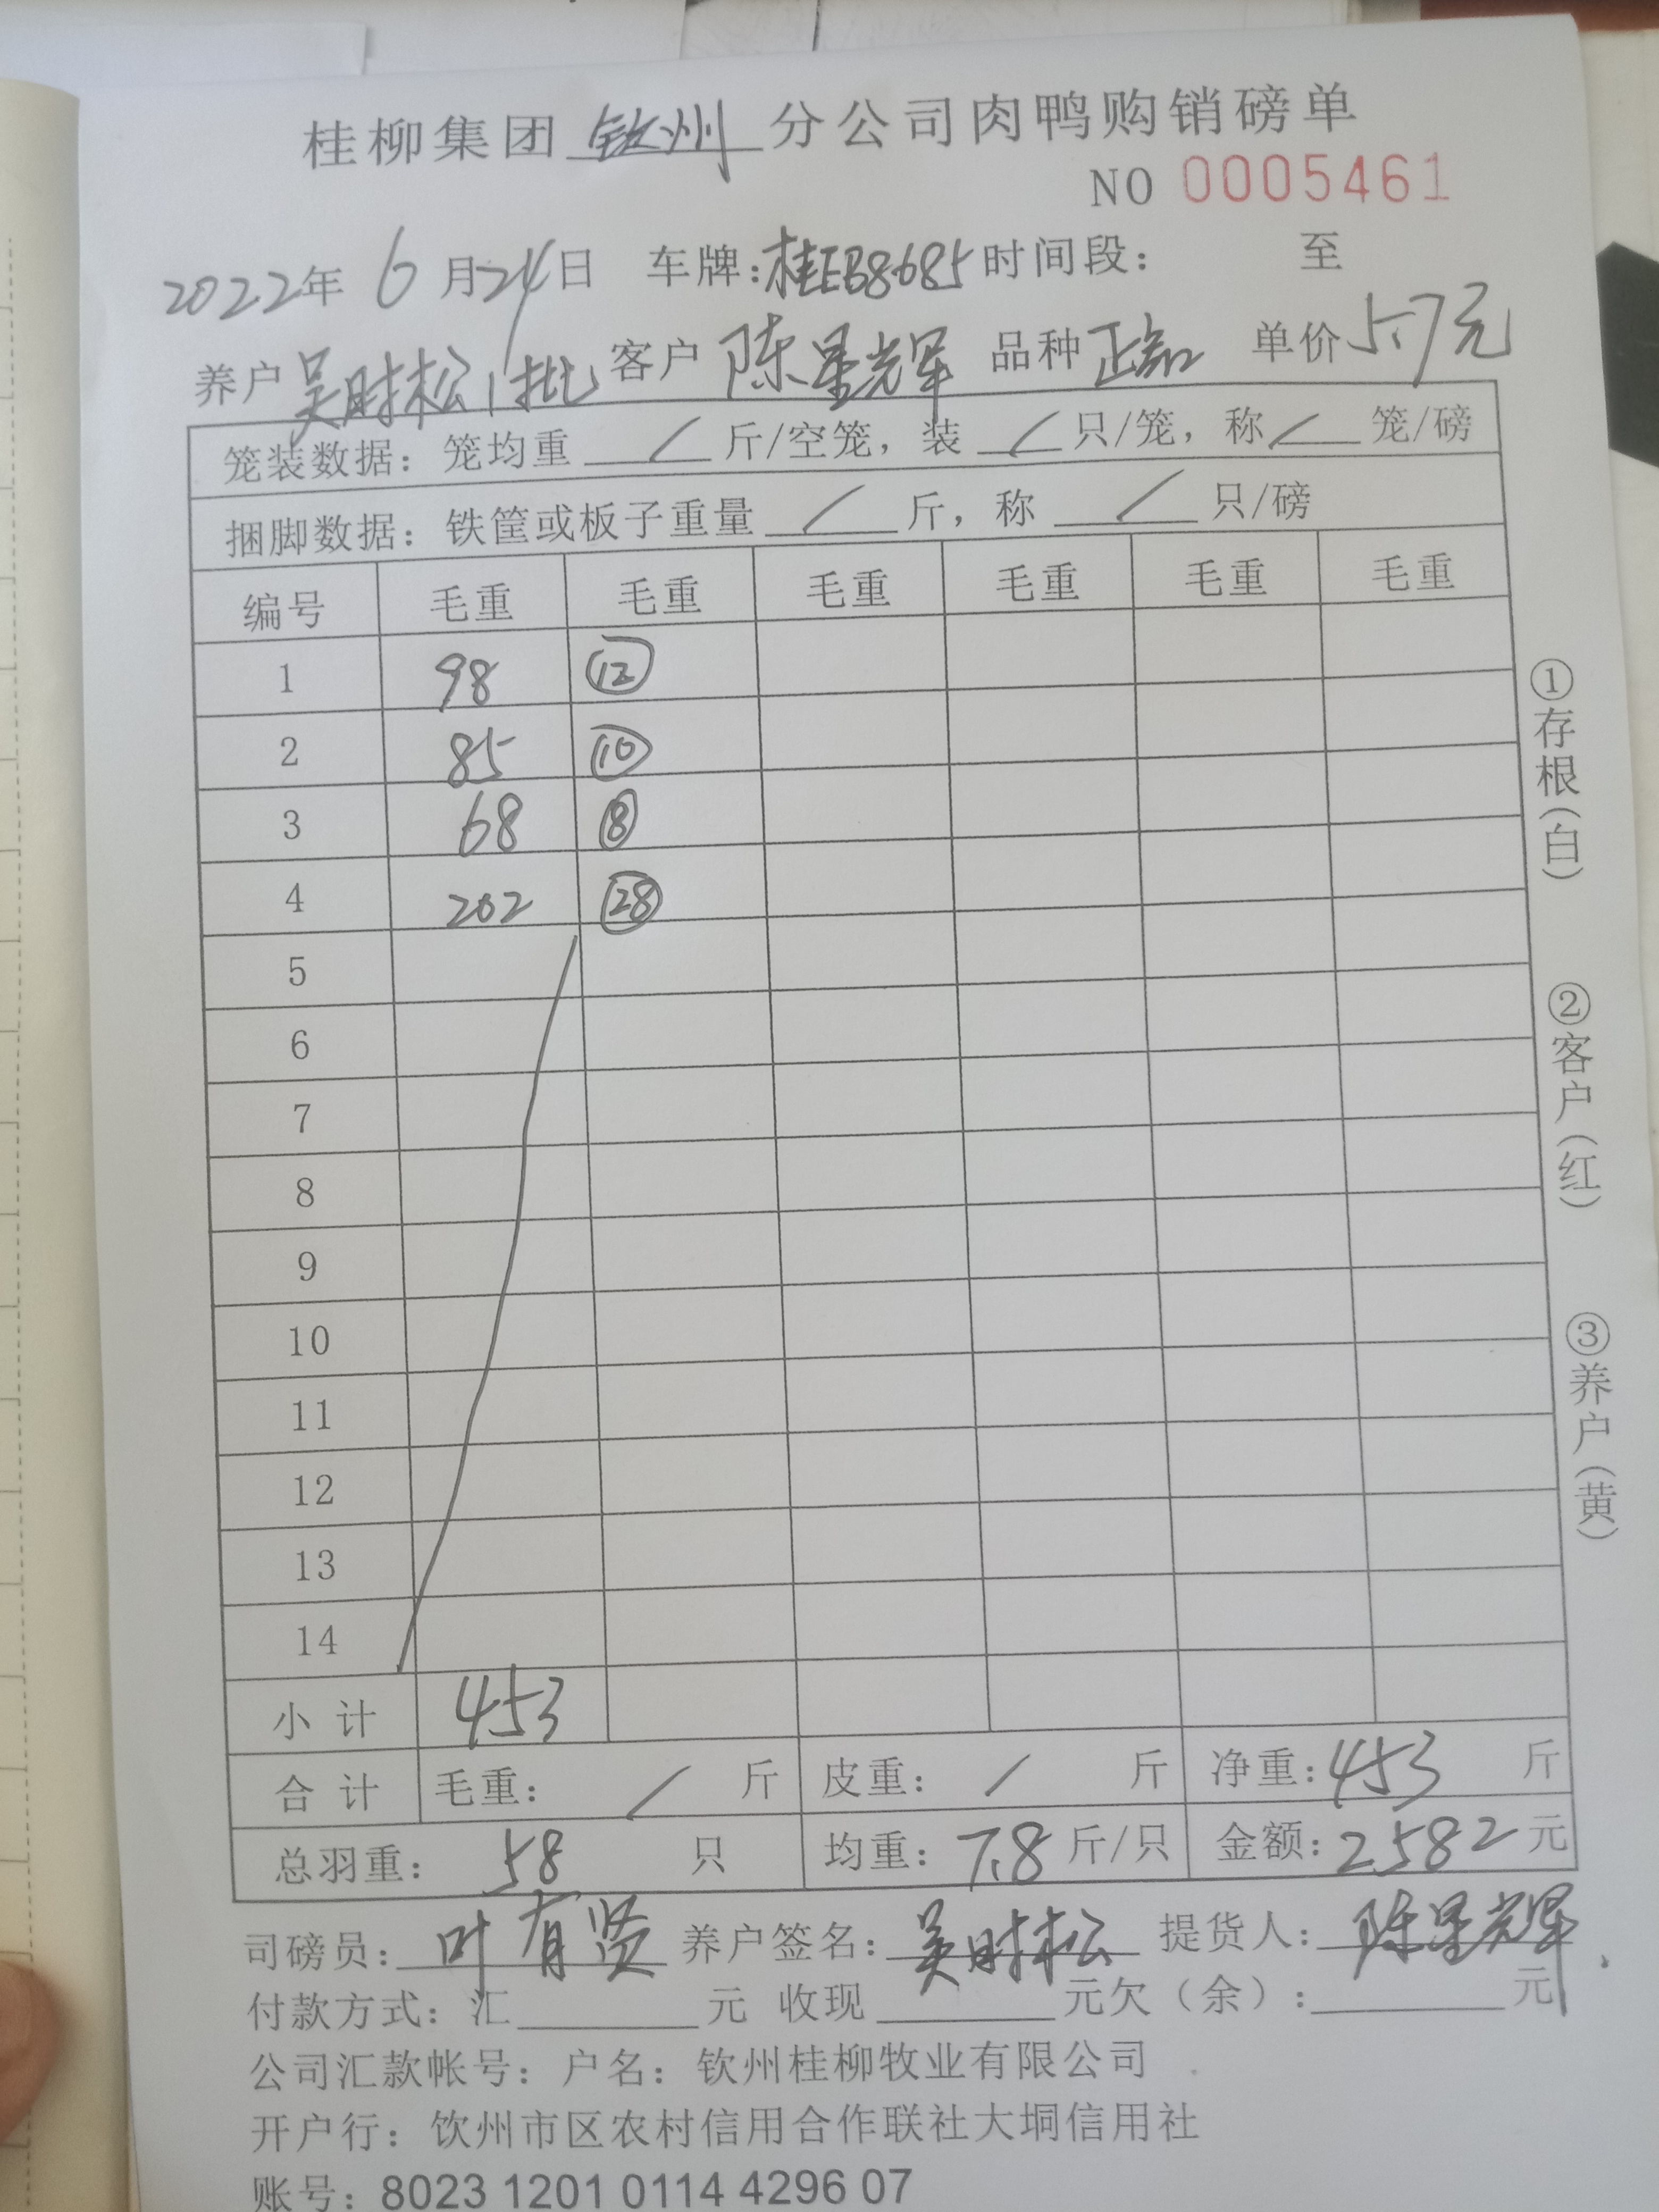 桂柳集团 钦州 分公司肉鸭购销磅单
NO 0005461
2022年 6 月24日 车牌:桂EB8685 时间段: 至
养户 吴时松1批 客户 陈星辉 品种 单价5.7元
笼装数据: 笼均重 / 斤/空笼, 装 / 只/笼, 称 / 笼/磅
捆脚数据: 铁筐或板子重量 / 斤, 称 / 只/磅
编号 毛重 毛重 毛重 毛重 毛重 毛重
1 98 ⑫
2 85 ⑩
3 68 ⑧
4 202 ㉘
5
6
7
8
9
10
11
12
13
14
小 计 453
合 计 毛重: / 斤 皮重: / 斤 净重:453 斤
总羽重: 58 只 均重: 7.8 斤/只 金额:2582 元
司磅员: 叶有贤 养户签名: 吴时松 提货人: 陈星辉
付款方式: 汇______元 收现______元欠(余):______元
公司汇款帐号: 户名: 钦州桂柳牧业有限公司
开户行: 钦州市区农村信用合作联社大垌信用社
账号: 8023 1201 0114 4296 07
①存根(白)
②客户(红)
③养户(黄)